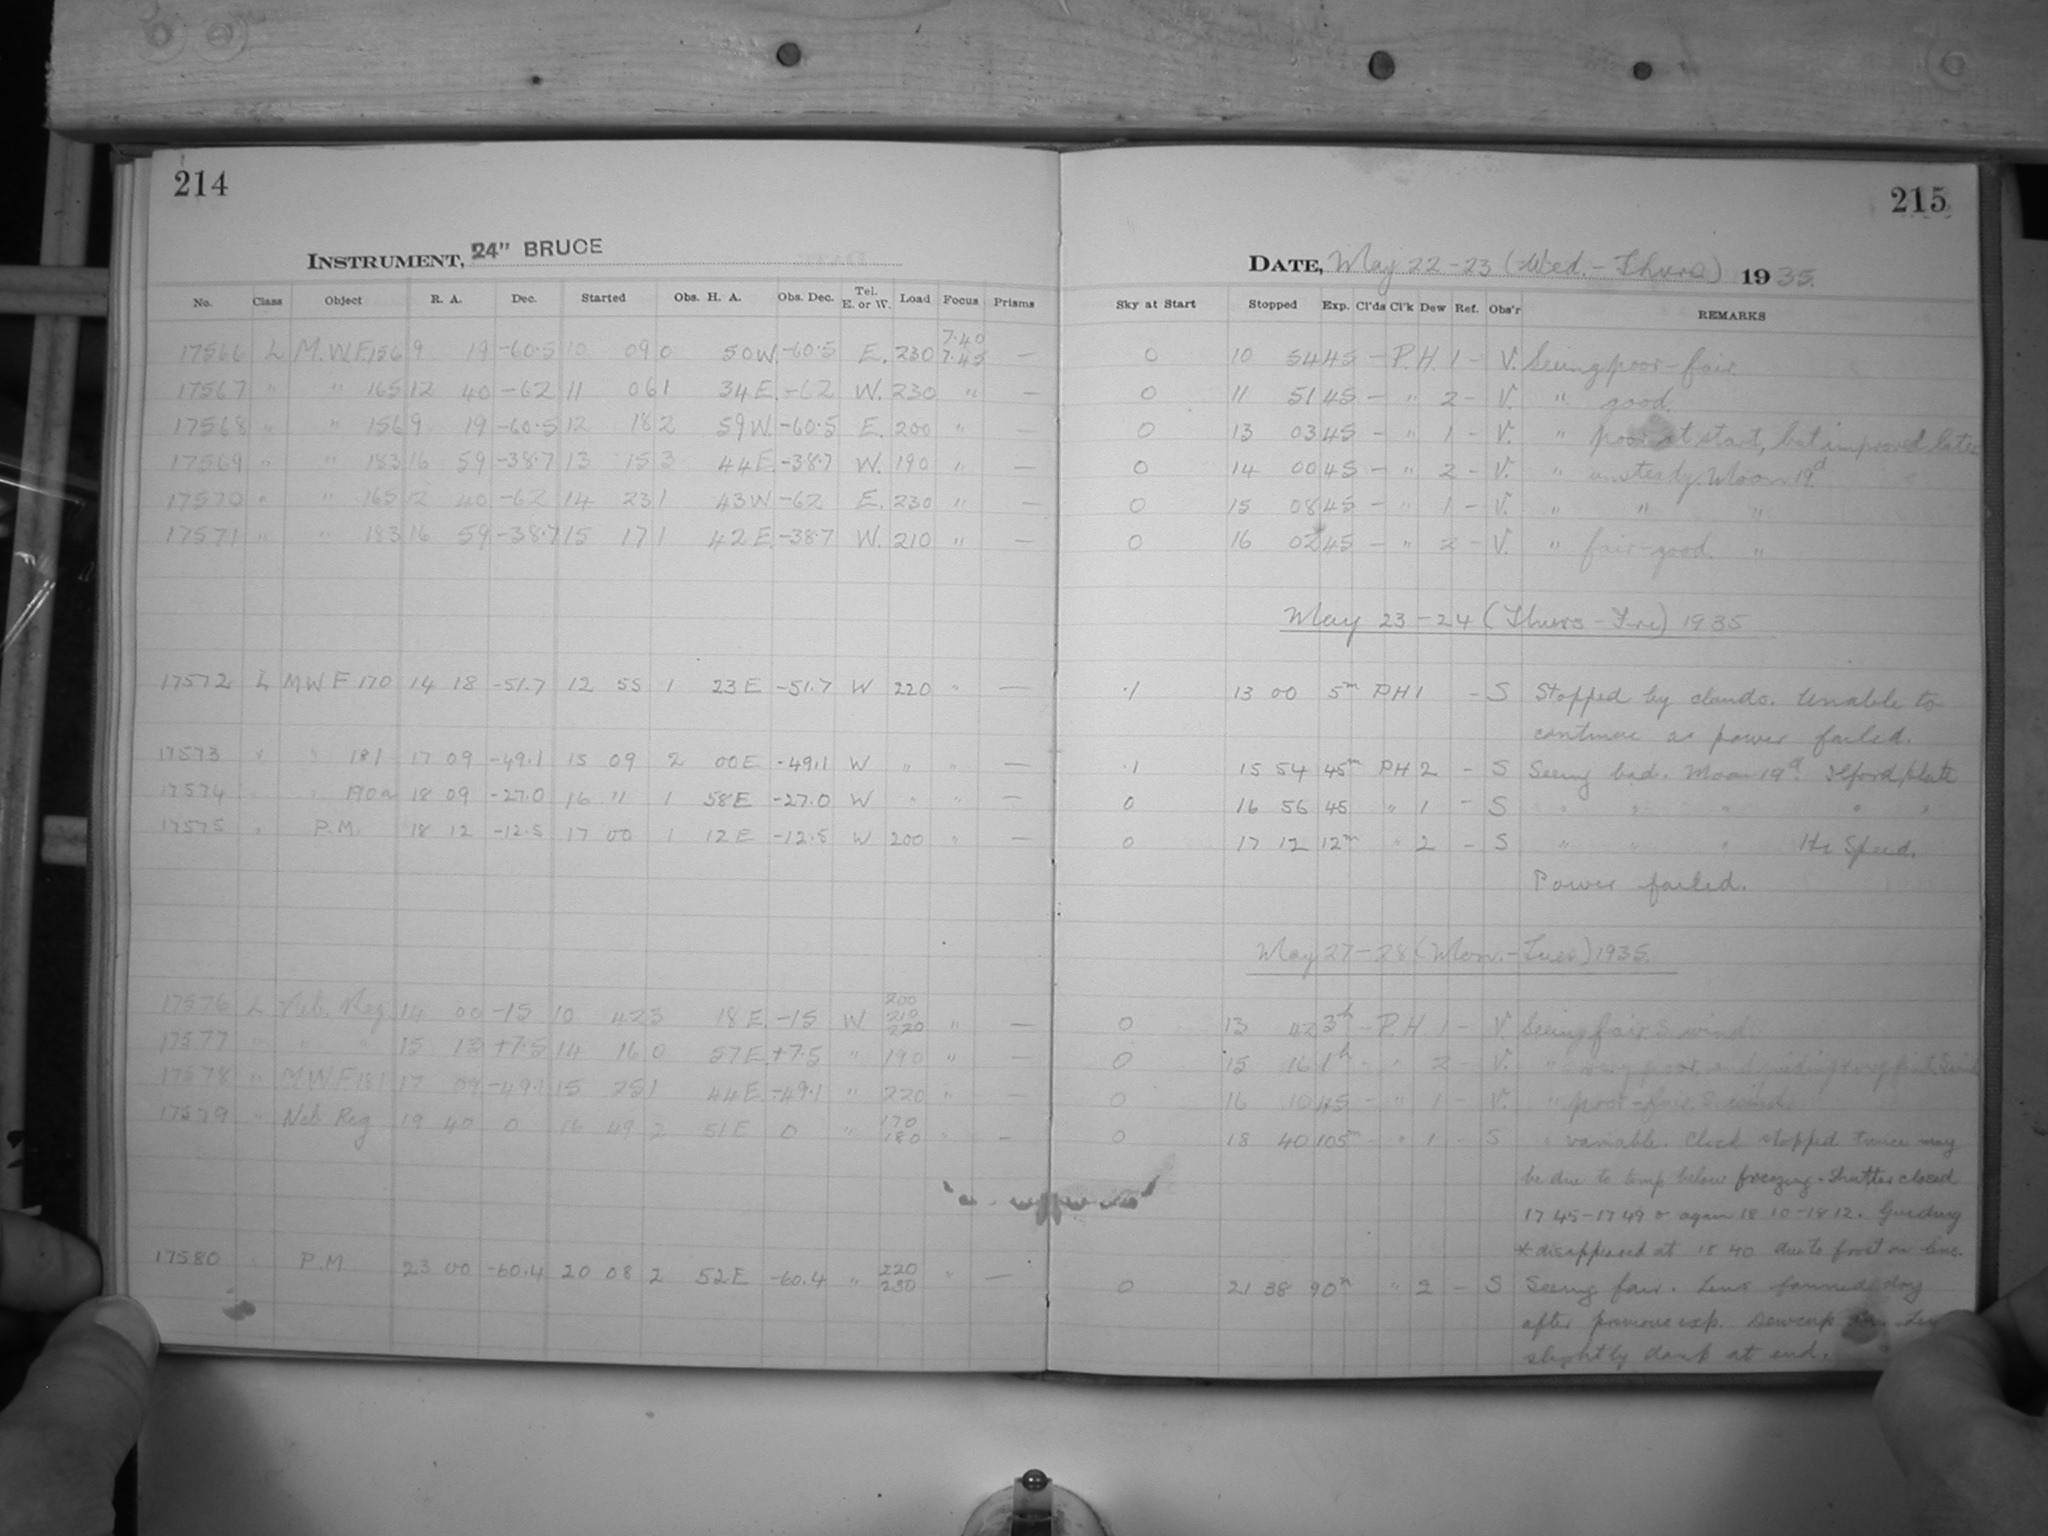 214
INSTRUMENT, 24" BRUCE
No. Class Object R. A. Dec. Started Obs. H. A. Obs. Dec. Tel. E. or W. Load Focus Prisms
17566 L M.W.F.156 9 19 -60.5 10 09 0 50W -60.5 E. 230 7.40 7.45 —
17567 " " 165 12 40 -62 11 06 1 34E. -62 W. 230 " —
17568 " " 156 9 19 -60.5 12 18 2 59W. -60.5 E. 200 " —
17569 " " 183 16 59 -38.7 13 15 3 44E -38.7 W. 190 " —
17570 " " 165 12 40 -62 14 23 1 43W -62 E. 230 " —
17571 " " 183 16 59 -38.7 15 17 1 42E. -38.7 W. 210 " —
17572 L MWF 170 14 18 -51.7 12 55 1 23E -51.7 W 220 " —
17573 " " 181 17 09 -49.1 15 09 2 00E -49.1 W " " —
17574 " " 190a 18 09 -27.0 16 11 1 58E -27.0 W " " —
17575 " P.M. 18 12 -12.5 17 00 1 12E -12.5 W 200 " —
17576 L Neb. Reg. 14 00 -15 10 42 3 18E. -15 W 200 210 220 " —
17577 " " " 15 13 +7.5 14 16 0 57E. +7.5 " 190 " —
17578 " MWF 181 17 09 -49.1 15 25 1 44E -49.1 " 220 " —
17579 " Neb Reg 19 40 0 16 49 2 51E 0 " 170 180 " —
17580 " P.M. 23 00 -60.4 20 08 2 52E -60.4 " 220 230 " —
215
DATE, May 22-23 (Wed.-Thurs) 1935.
Sky at Start Stopped Exp. Cl'ds Cl'k Dew Ref. Obs'r REMARKS
0 10 54 45 — P.H. 1 - V. Seeing poor-fair.
0 11 51 45 — " 2 - V. " good.
0 13 03 45 — " 1 - V. " poor at start, but improved later
0 14 00 45 — " 2 - V. " unsteady. Moon 19d
0 15 08 45 — " 1 - V. " " "
0 16 02 45 — " 2 - V. " fair-good. "
May 23-24 (Thurs-Fri) 1935
.1 13 00 5m PH 1 - S Stopped by clouds. Unable to
continue as power failed.
.1 15 54 45m PH 2 - S Seeing bad. Moon 19d. Ilford plate
0 16 56 45 " 1 - S " " " " "
0 17 12 12m " 2 - S " " " Hi Speed.
Power failed.
May 27-28 (Mon.-Tues.) 1935.
0 13 42 3h - P.H 1 - V. Seeing fair. S. wind.
0 15 16 1h - " 2 - V. " very poor, and guiding
0 16 10 45 - " 1 - V. " poor-fair. S. wind.
0 18 40 105m - " 1 - S " variable. Clock stopped twice may
be due to temp below freezing - Shutter closed
17 45-17 49 & again 18 10-18 12. Guiding
* disappeared at 18 40 due to frost on lens.
0 21 38 90m " 2 - S Seeing fair. Lens fanned dry
after previous exp. Dewcap
slightly damp at end.